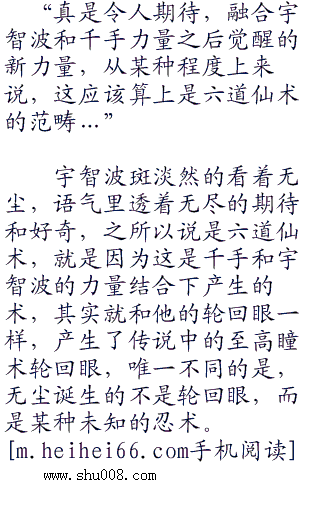 “真是令人期待，融合宇
智波和千手力量之后觉醒的
新力量，从某种程度上来
说，这应该算上是六道仙术
的范畴…”
宇智波斑淡然的看着无
尘，语气里透着无尽的期待
和好奇，之所以说是六道仙
术，就是因为这是千手和宇
智波的力量结合下产生的
术，其实就和他的轮回眼一
样，产生了传说中的至高瞳
术轮回眼，唯一不同的是，
无尘诞生的不是轮回眼，而
是某种未知的忍术。
[m.heihei66.com手机阅读]
www.shu008.com